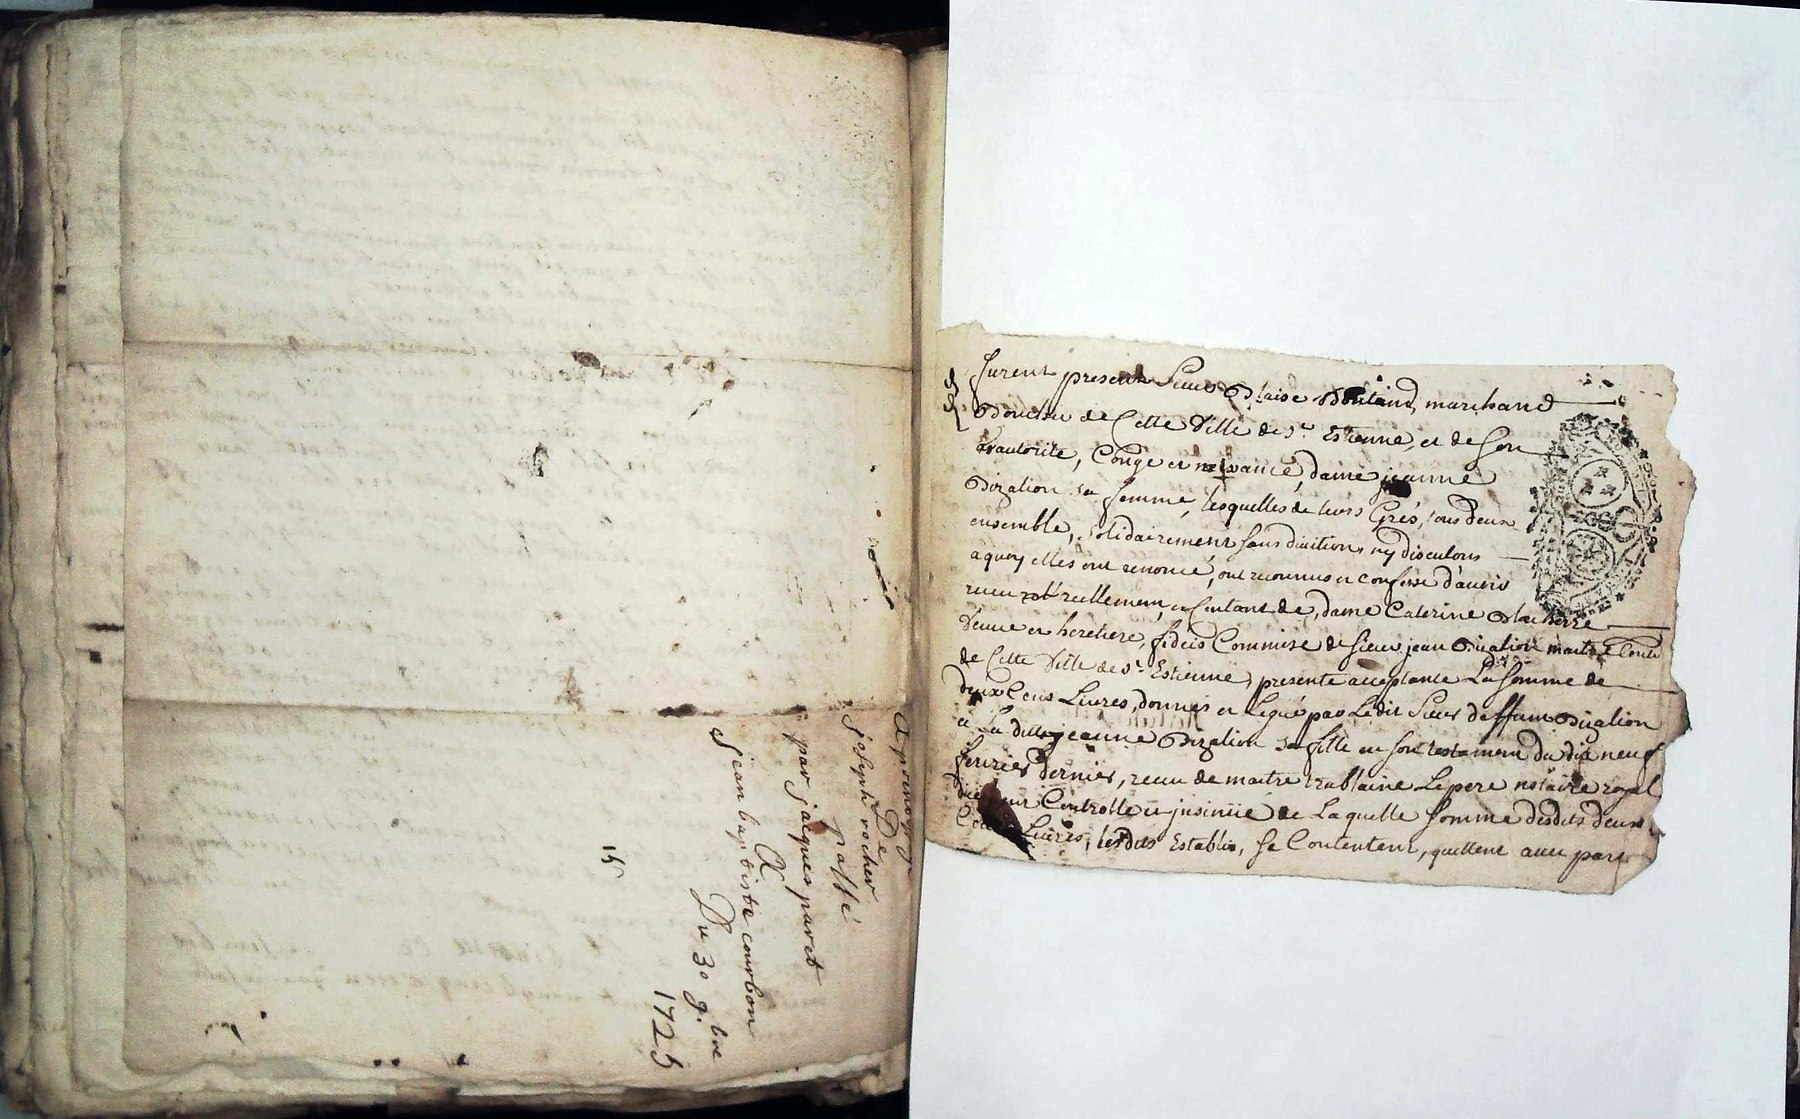 aprentage
De
joseph rocher
passé
par jacques paret
A
jean baptiste courbon
Du 30 9.bre
1725
15
furent presents Sieur Blaise marchand
Boucher de Cette Ville de St. Estienne, et de Son
autorité, Congé et dame jeanne
Dization sa femme, lesquelles de leurs Grés, tous deux
ensemble, solidairement sans divition ny discutions
a quoy elles ont renoncé, ont reconnus et confessé d'avoir
receu reellement, et Contant de, dame Caterine
Veuve et heretiere, fideis Commise de Sieur jean Dization
de Cette Ville de St. Estienne, presente acceptante La Somme de
deux Cens Livres, donnés et Legué par Ledit Sieur deffunt Dization
a La ditte jeanne Dization sa fille en son testament du dix neuf
fevrier dernier, receu de maitre trablaine Lepere notaire royal
Controllé et jnsinüé de Laquelle Somme desdits deux
Livres, lesdits Establis, Se Contentent, quittent avec pars